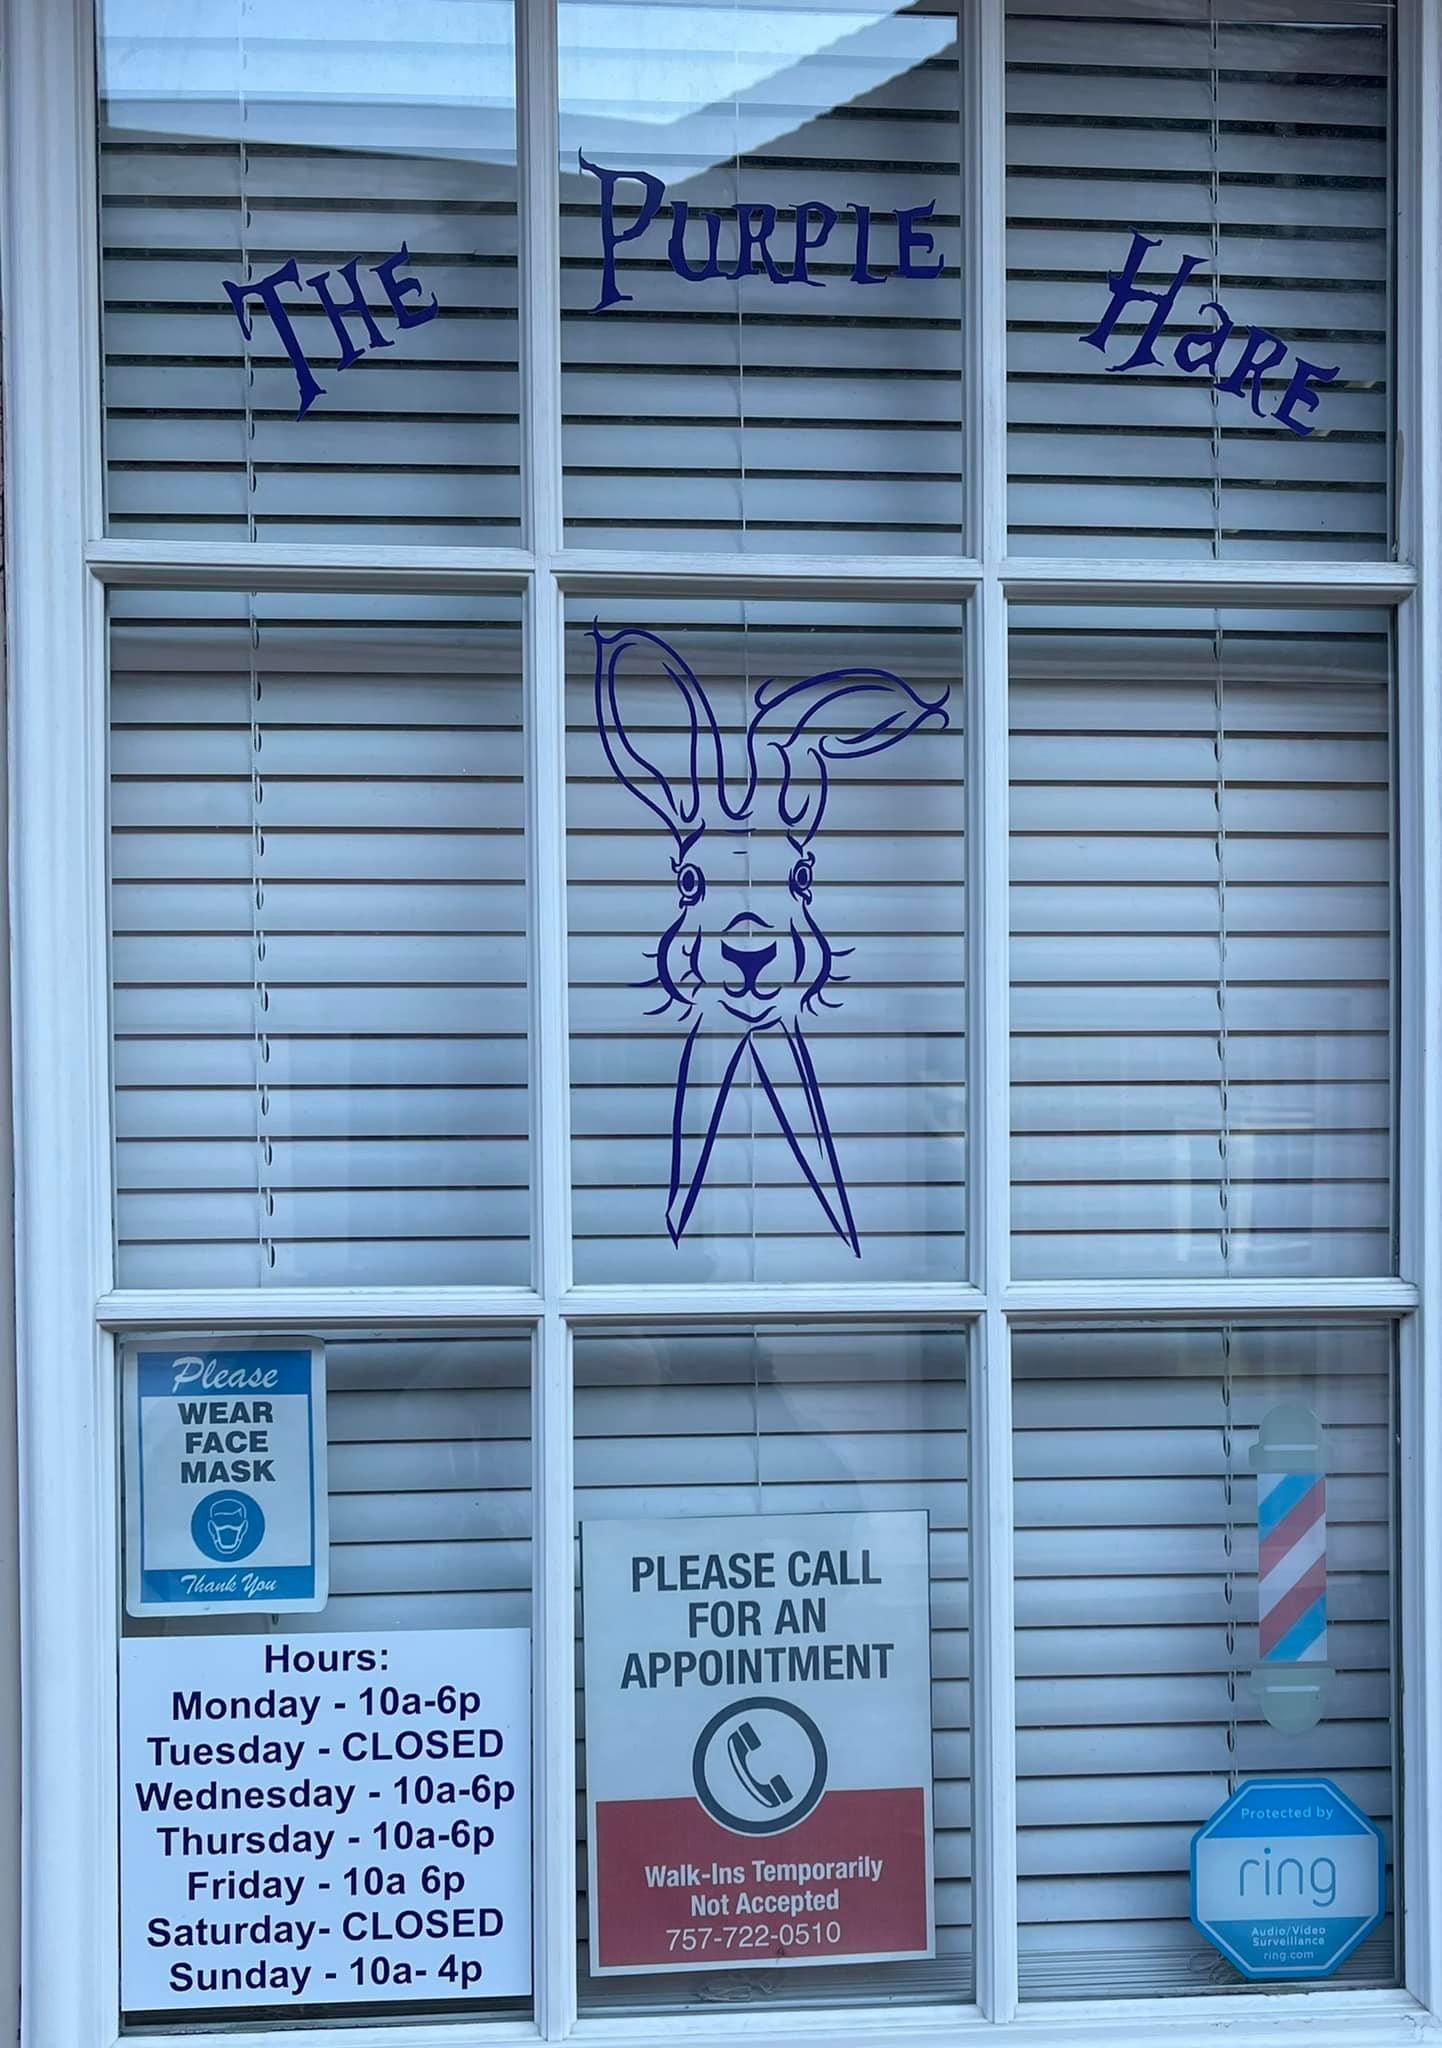 The Purple Hare
Please
WEAR
FACE
MASK
Thank You
Hours:
Monday - 10a-6p
Tuesday - CLOSED
Wednesday - 10a-6p
Thursday - 10a-6p
Friday - 10a 6p
Saturday- CLOSED
Sunday - 10a- 4p
PLEASE CALL
FOR AN
APPOINTMENT
Walk-Ins Temporarily
Not Accepted
757-722-0510
Protected by
ring
Audio/Video
Surveillance
ring.com